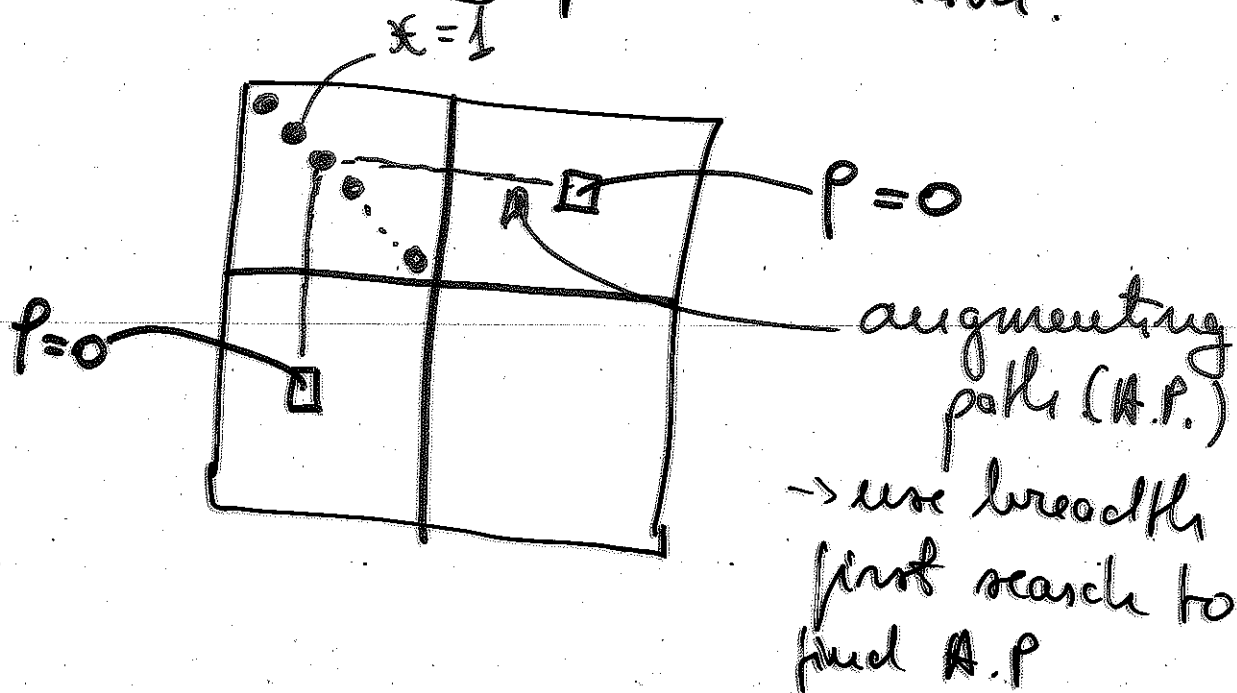 x=1
ρ=0
ρ=0
augmenting
path (A.P.)
-> use breadth
first search to
find A.P